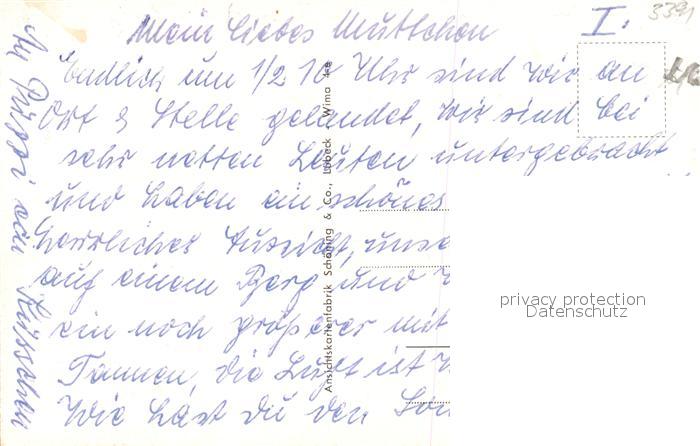 I.
3391
Mein liebes Muttchen
Endlich um 1/2 10 Uhr sind wir an
Ort & Stelle gelandet, wir sind bei
sehr netten Leuten untergebracht
und haben ein schönes
herrlicher Aussicht, unse
auf einem Berg und
ein noch größerer mit
Tannen, die Luft ist
Wie hast du den Son
Ansichtskartenfabrik Schöning & Co., Lübeck · Wima
privacy protection
Datenschutz
ein Küsschen